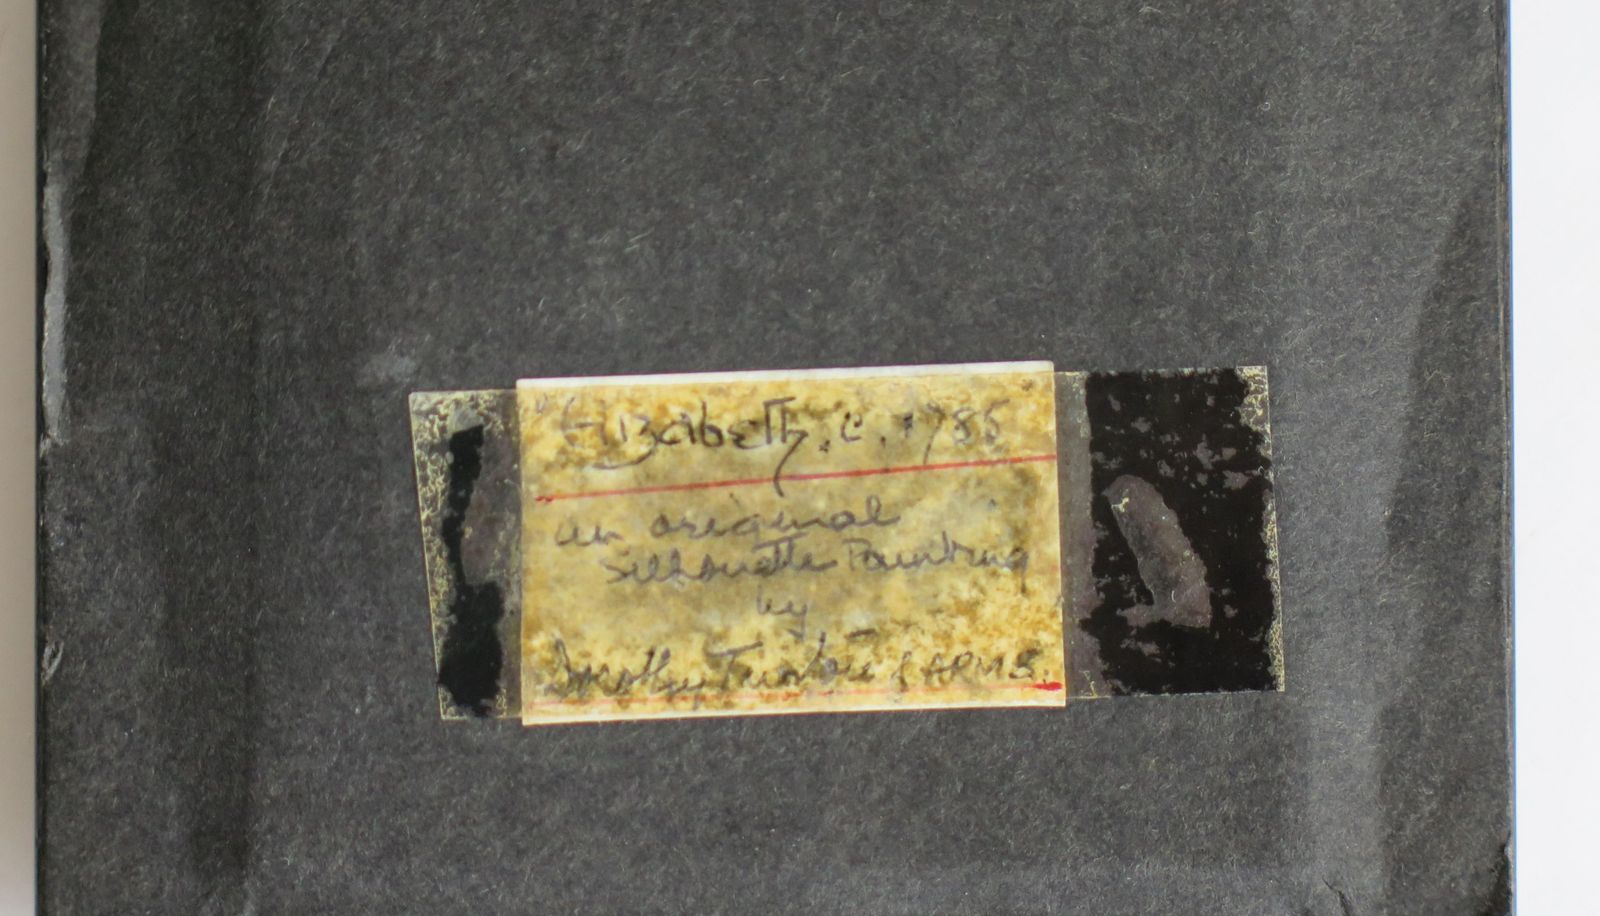 "Elizabeth. c. 1785
an original
Silhouette Painting
by
Dorothy Turton